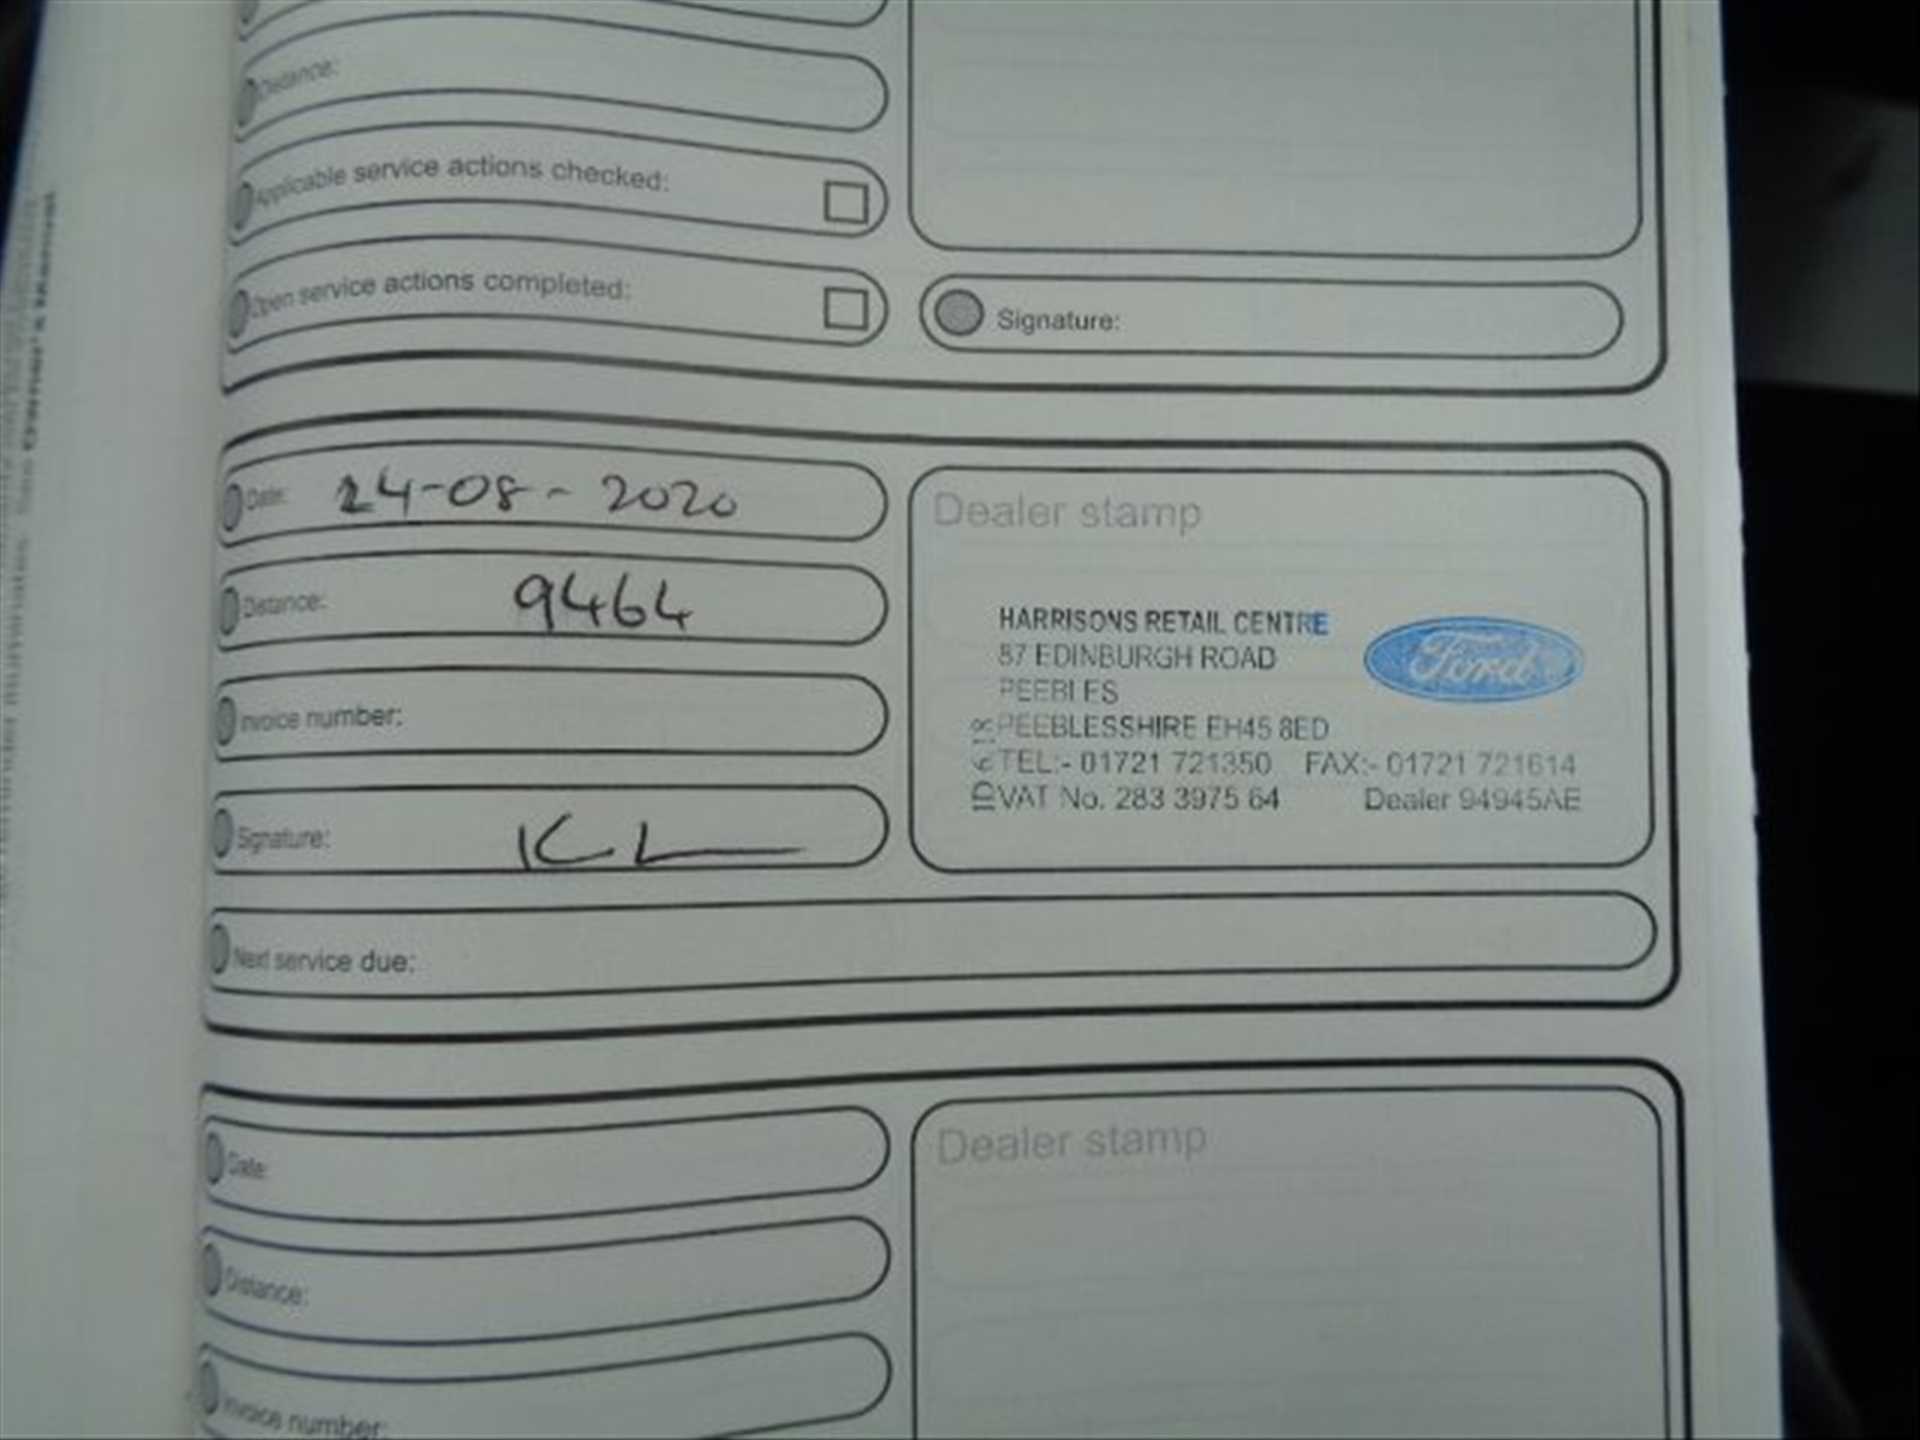 Distance:
Applicable service actions checked:
Open service actions completed:
Signature:
Date: 24-08-2020
Distance: 9464
Invoice number:
Signature: KL
Next service due:
Dealer stamp
HARRISONS RETAIL CENTRE
87 EDINBURGH ROAD
PEEBLES
PEEBLESSHIRE EH45 8ED
TEL:- 01721 721350 FAX:- 01721 721614
VAT No. 283 3975 64 Dealer 94945AE
Ford
Date:
Distance:
Invoice number:
Dealer stamp